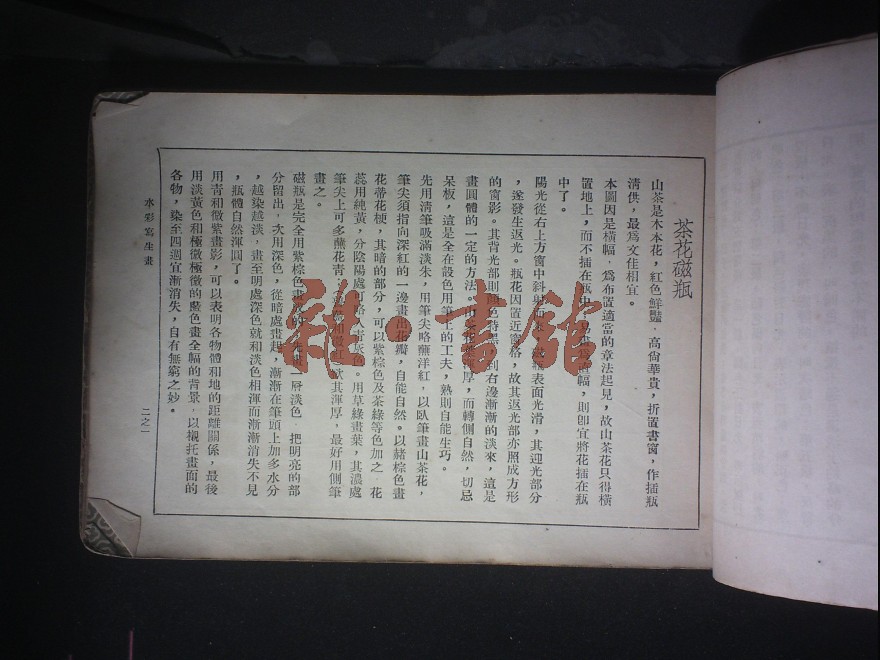 茶花磁瓶
山茶是木本花，紅色鮮豔，高尚華貴，折置書窗，作插瓶
清供，最爲文佳相宜。
本圖因是橫幅，爲布置適當的章法起見，故山茶花只得橫
置地上，而不插在瓶中，直幅，則卽宜將花插在瓶
中了。
陽光從右上方窗中斜射表面光滑，其迎光部分
，遂發生返光。瓶花因置近窗格，故其返光部亦照成方形
的窗影。其背光部則顏色特黑，到右邊漸漸的淡來，這是
畫圓體的一定的方法。厚，而轉側自然，切忌
呆板，這是全在設色用筆上的工夫，熟則自能生巧。
先用清筆吸滿淡朱，用筆尖略蘸洋紅，以臥筆畫山茶花，
筆尖須指向深紅的一邊畫出花瓣，自能自然。以赭棕色畫
花蒂花梗，其暗的部分，可以紫棕色及茶綠等色加之，花
蕊用純黃，分陰陽處可略入青灰色。用草綠畫葉，其濃處
筆尖上可多蘸花青，其渾厚，最好用側筆
畫之。
磁瓶是完全用紫棕色畫成的，先畫一層淡色，把明亮的部
分留出，次用深色，從暗處畫起，漸漸在筆頭上加多水分
，越染越淡，畫至明處深色就和淡色相渾而漸漸消失不見
，瓶體自然渾圓了。
用青和微紫畫影，可以表明各物體和地的距離關係，最後
用淡黃色和極微極微的藍色畫全幅的背景，以襯托畫面的
各物，染至四週宜漸消失，自有無窮之妙。
水彩寫生畫
二之一
雜·書館